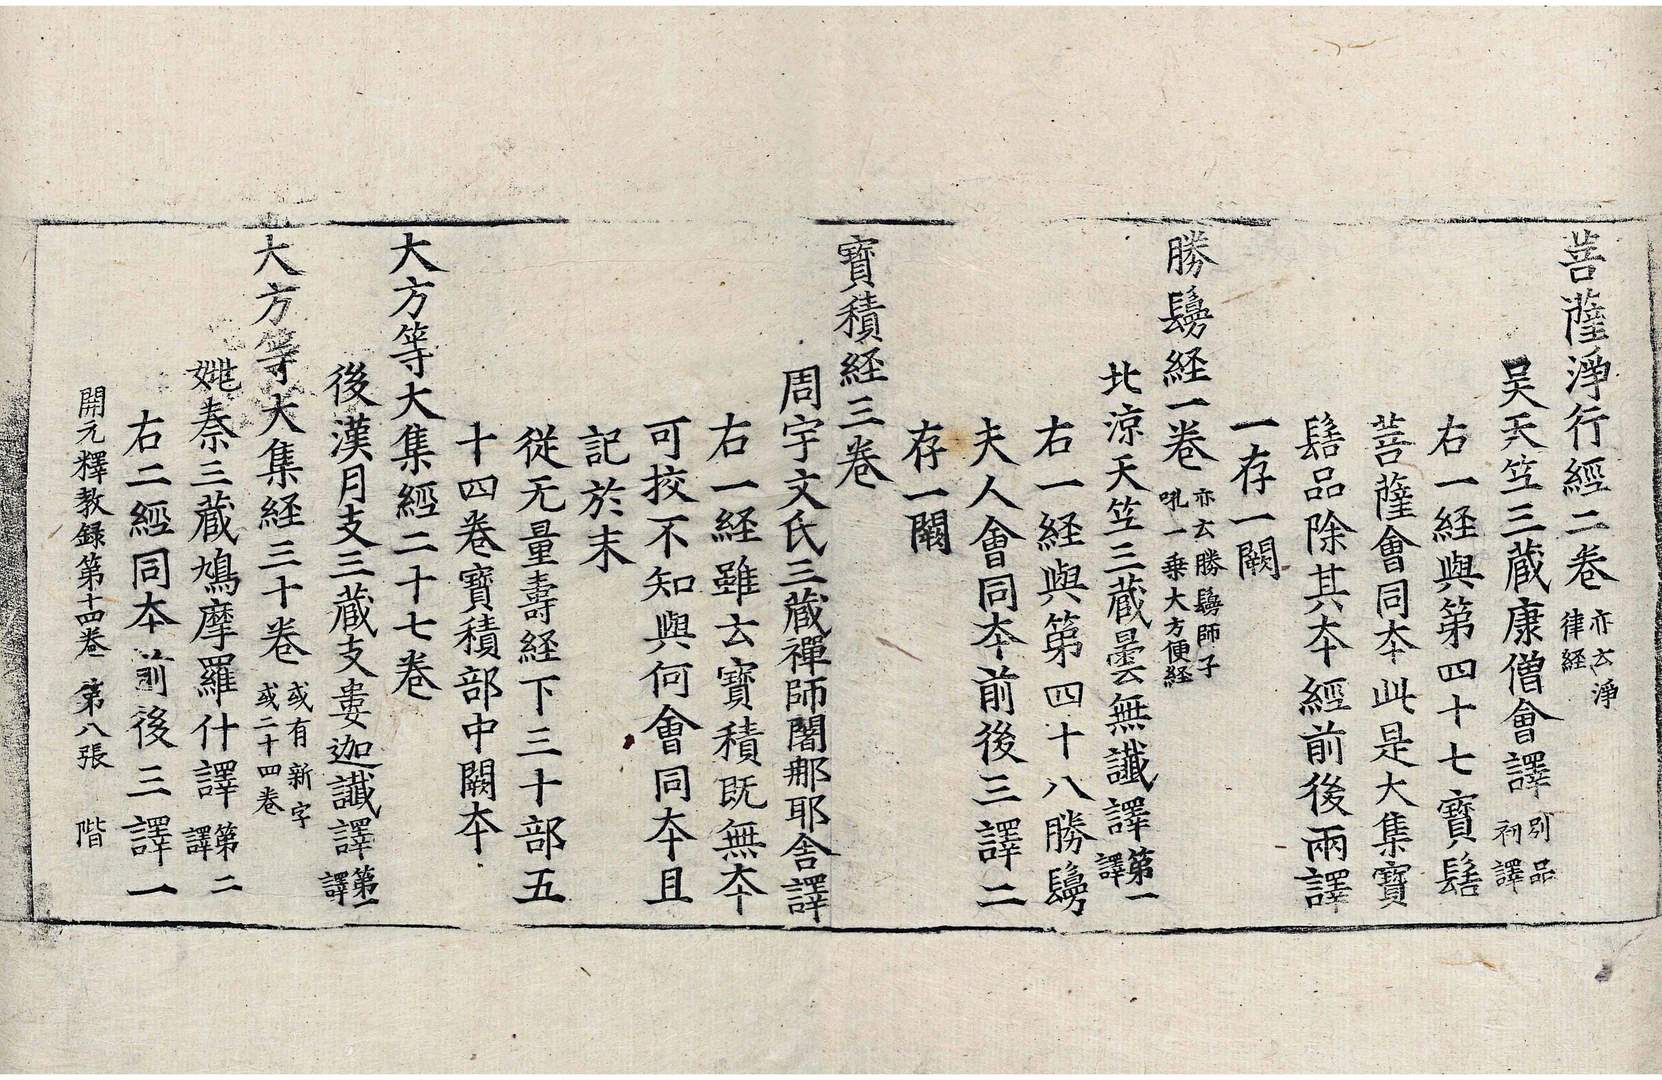 菩薩淨行経二卷 亦云淨律経
吴天竺三藏康僧會譯 別品初譯
右一経與第四十七寳髻
菩薩會同夲此是大集寳
髻品除其夲經前後兩譯
一存一闕
勝鬘経一卷 亦云勝鬘師子吼一乗大方便経
北涼天竺三藏曇無讖譯 第一譯
右一経與第四十八勝鬘
夫人會同夲前後三譯二
存一闕
寶積経三卷
周宇文氏三藏禪師闍那耶舍譯
右一経雖云寳積既無夲
可挍不知與何會同夲且
記於末
從无量壽経下三十部五
十四卷寳積部中闕夲
大方等大集經二十七卷
後漢月支三藏支婁迦讖譯 第一譯
大方等大集経三十卷 或有新字或二十四卷
姚秦三藏鳩摩羅什譯 第二譯
右二經同夲前後三譯一
開元釋教録第十四卷 第八張 階